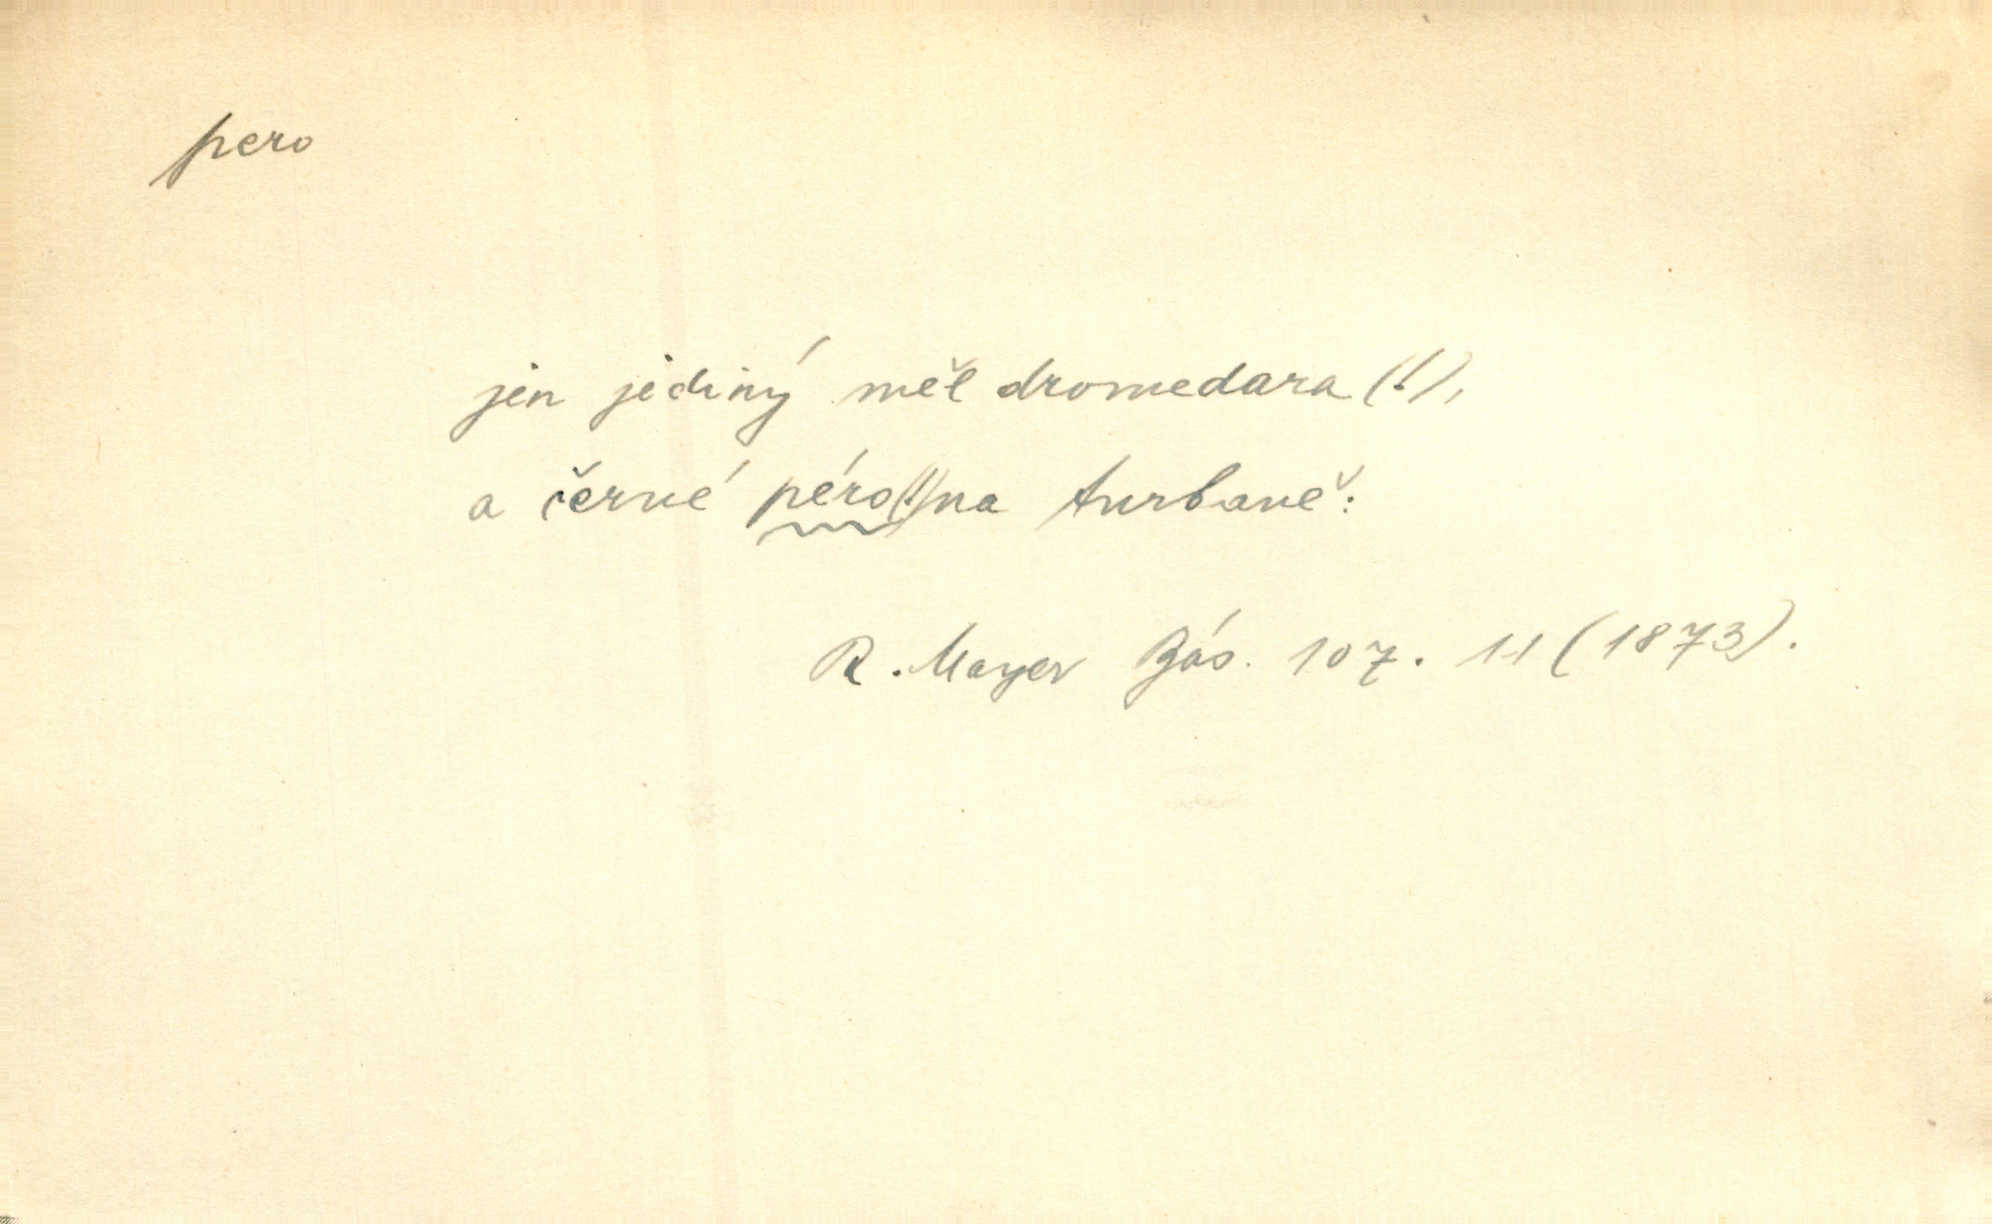 pero
jen jediný měl dromedara (!),
a černé péro (!) na turbaně:
R. Mayer Bás. 107. 11 (1873).